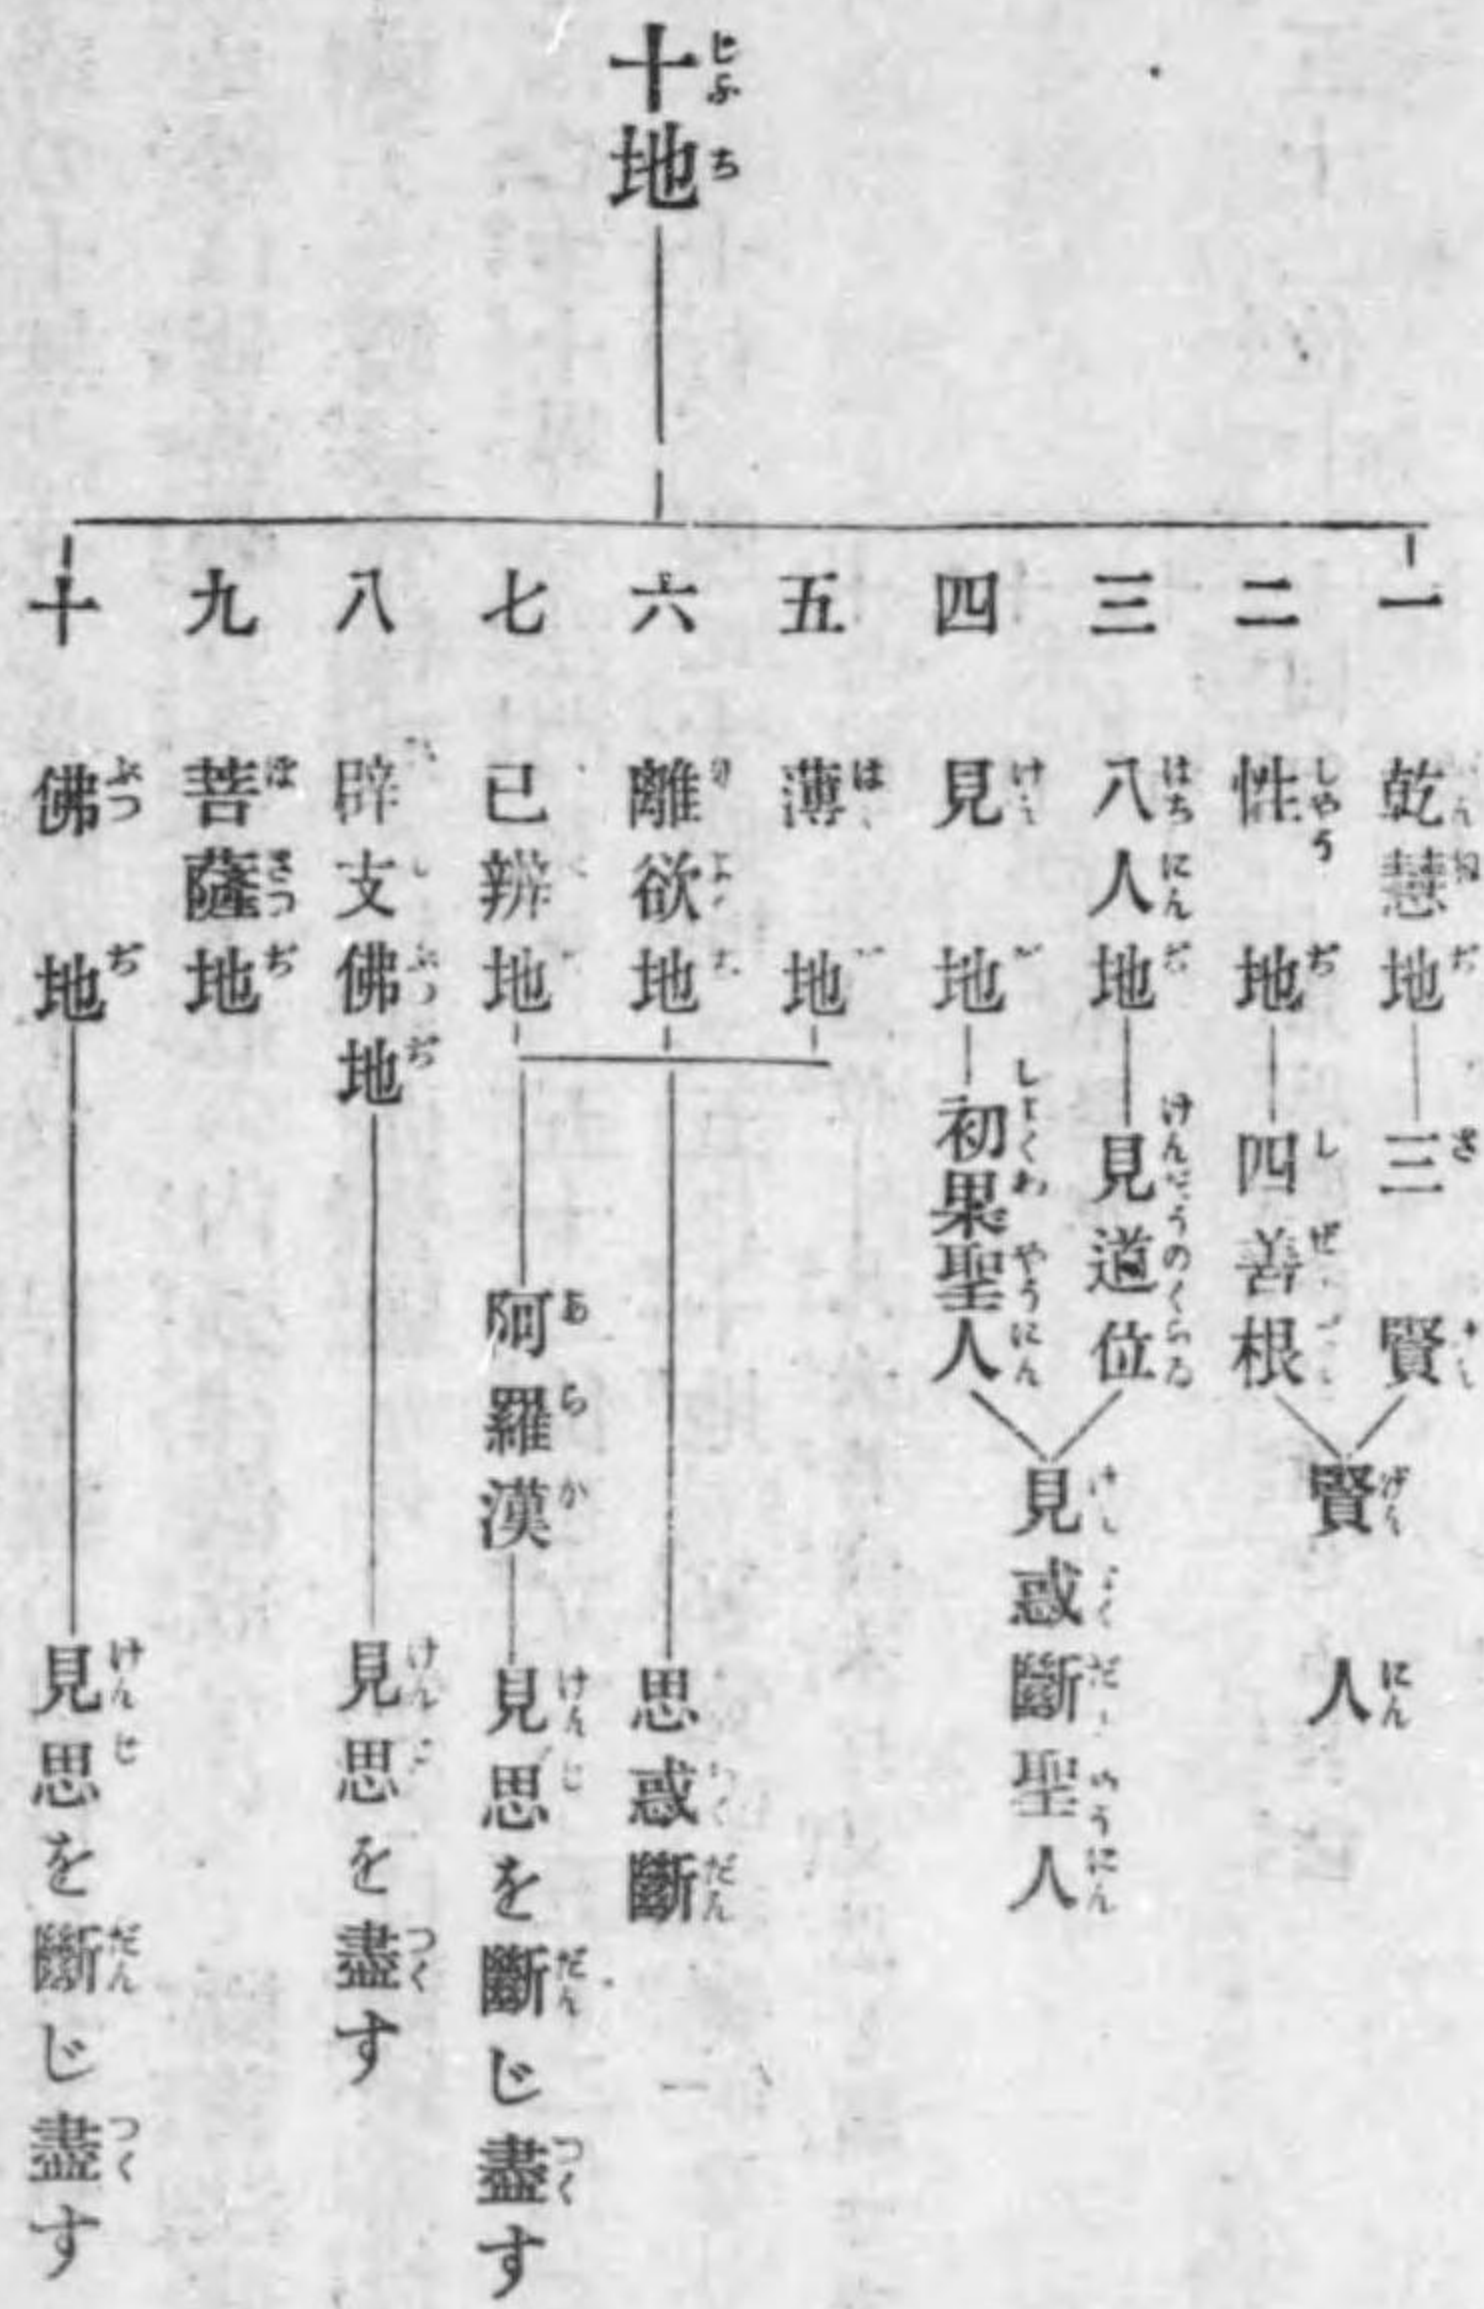 十地
一 乾慧地 三賢
二 性地 四善根
賢人
三 八人地 見道位
四 見地 初果聖人
見惑斷聖人
五 薄地
六 離欲地
思惑斷
七 已辨地 阿羅漢 見思を斷じ盡す
八 辟支佛地 見思を盡す
九 菩薩地
十 佛地 見思を斷じ盡す